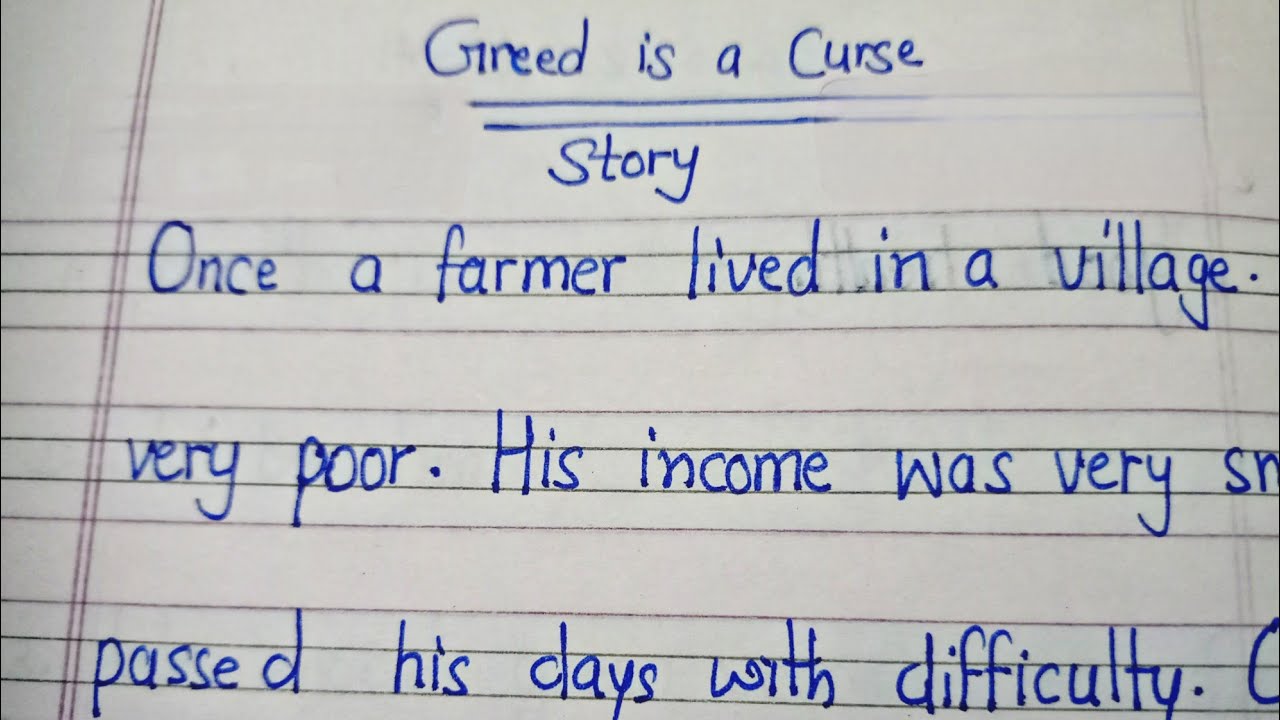 Greed is a Curse
Story
Once a farmer lived in a village.
very poor. His income was very
passed his days with difficulty.